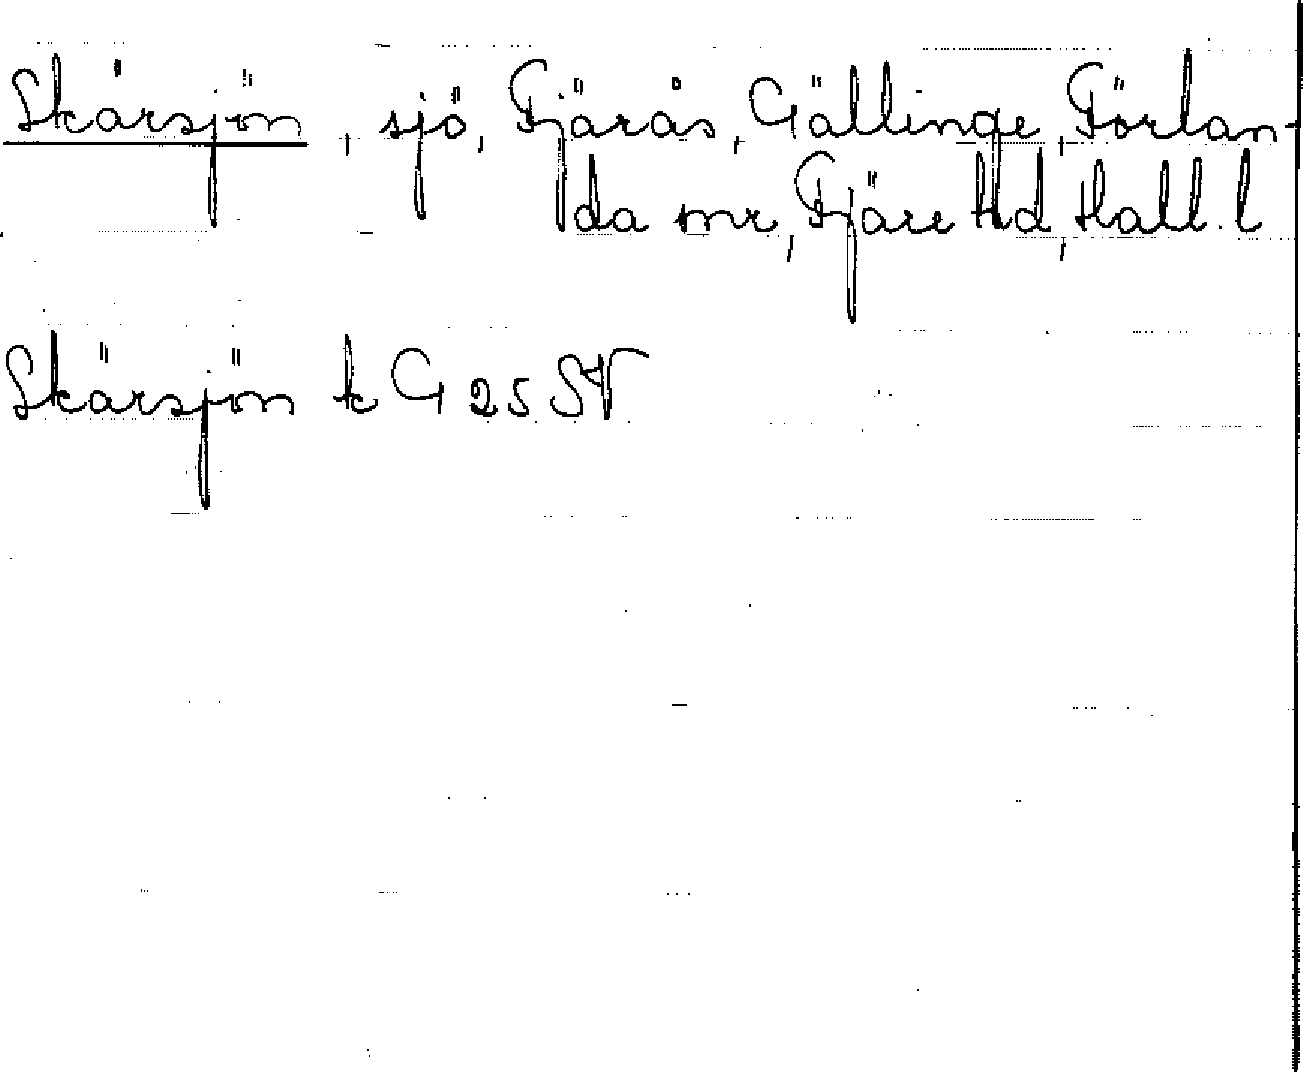 Skärsjön, sjö, Fjärås, Gällinge, Förlan-
da snr, Fjäre hd, Hall. l
Skärsjön k G 25 SV